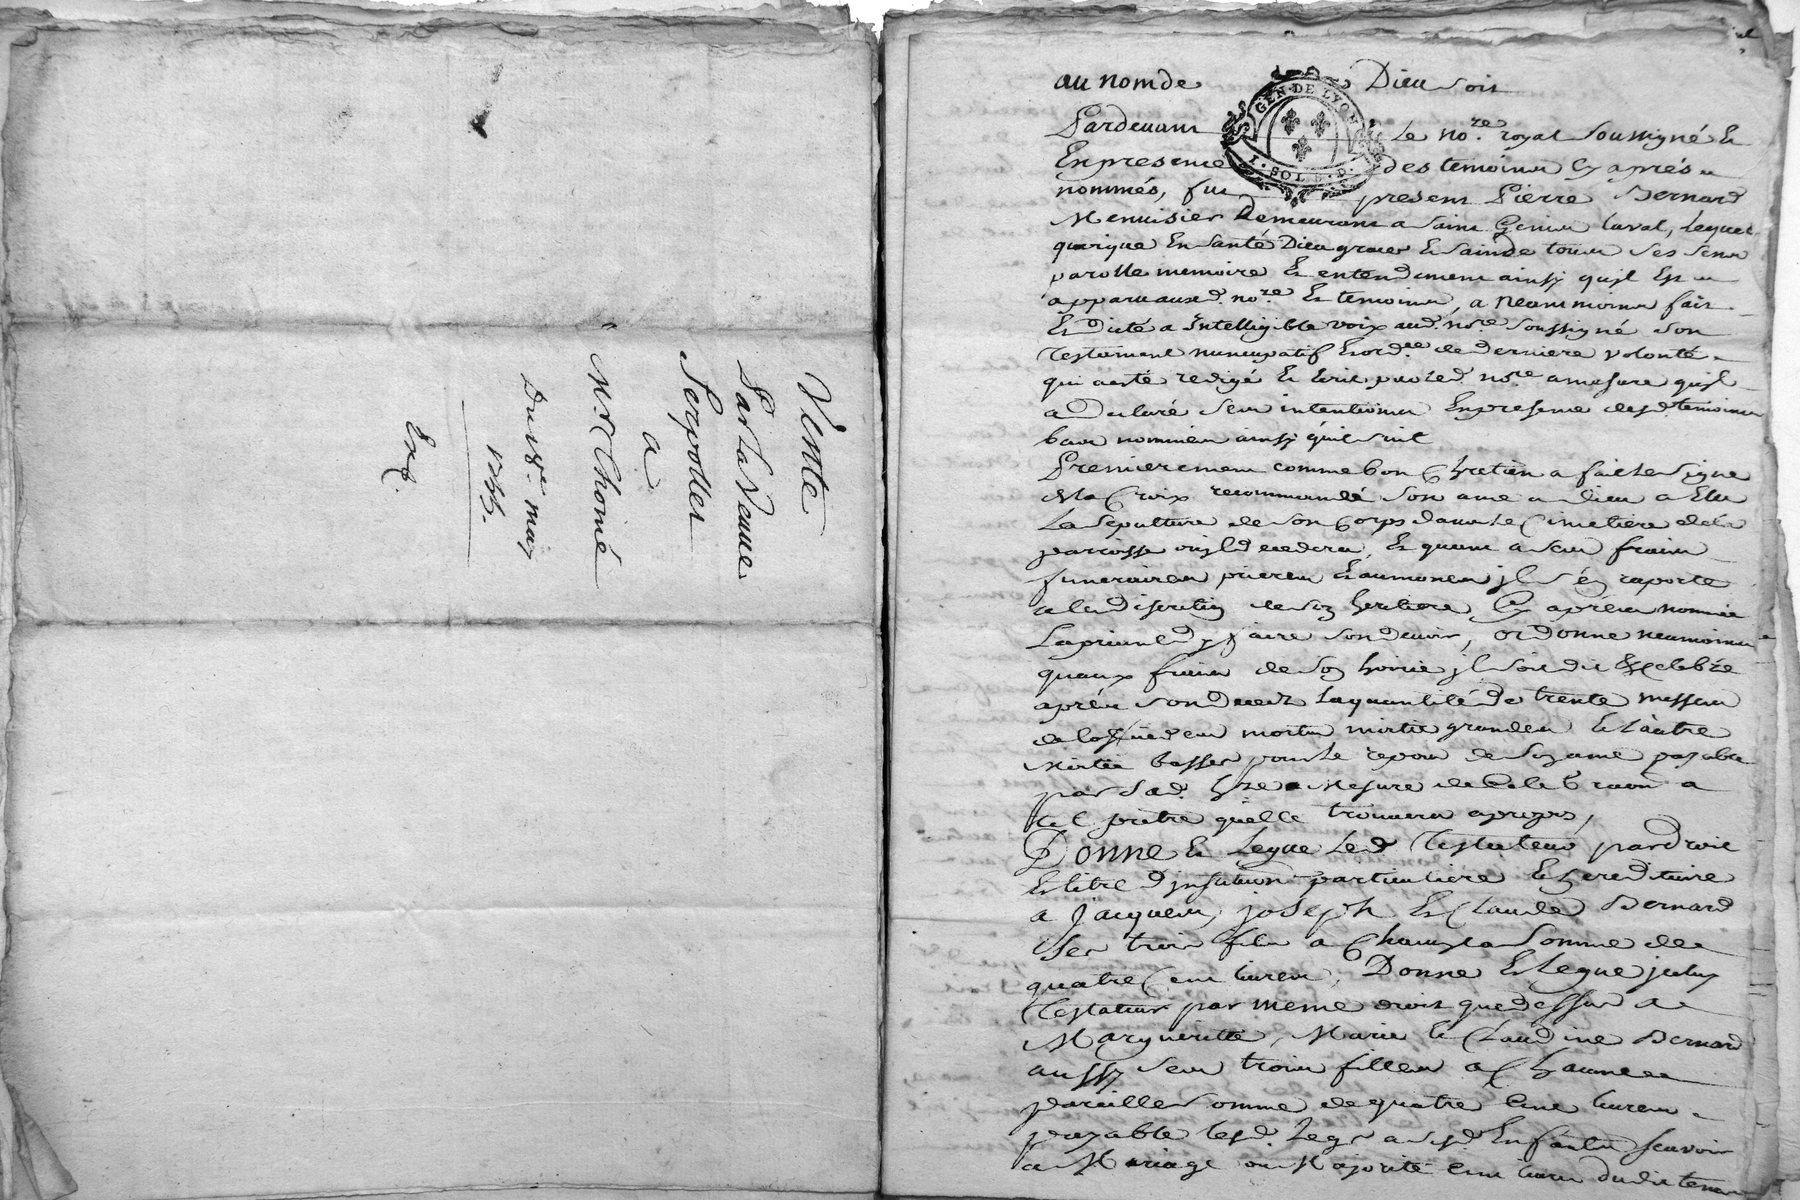 Vente
Par la Veuve
Serpollet
a
Mr Chomé
Du 18e may
Exp.
au nom de Dieu soit
GEN. DE LYON
1. SOL. 8. D.
Pardevant le nore. royal soussigné Et
En presence des temoins Cy aprés
nommés, fut present Pierre Bernard
Menuisier demeurant a Saint Genis laval, lequel
quoique En santé Dieu grace Et sain de tous ses sens
parolle memoire Et entendement ainsy quil Est
apparu auxd. nore. Et temoins, a neanmoins fait
Et dicté a Intelligible voix aud. nore. soussigné son
Testament nuncupatif Et ordce. de derniere volonté
qui a esté redigé Et Ecrit par led. nore. a mesure quil
a declaré ses intentions En presence desd. temoins
bas nommés ainsy quil suit
Premierement comme bon Chretien a fait le signe
de la Croix recommandé son ame a dieu a Elu
la sepulture de son Corps dans le Cimetiere de la
paroisse ou il decedera, Et quant a ses frais
funeraires prieres Et aumones il s'en raporte
a la discretion de son heritiere Cy aprés nommée
la priant d'y faire son devoir, ordonne neanmoins
quaux frais de son hoirie il soit dit Et Celebré
aprés son decez la quantité de trente messes
de l'office des morts moitié grandes Et l'autre
moitié basses pour le repos de son ame payable
par sad. hre a mesure de Celebration a
tel prêtre quelle trouvera apropos,
Donne Et legue led. Testateur par droit
Et titre d'institution particuliere Et hereditaire
a Jacques, Joseph Et Claude Bernard
ses trois fils a Chacun la somme de
quatre Cent livres, Donne Et legue iceluy
Testateur par meme droit que dessus a
Margueritte, Marie Et Claudine Bernard
aussy ses trois filles a Chacune
pareille somme de quatre Cent livres
payable lesd. legs a sesd. Enfants scavoir
a Mariage ou Majorité Cent livres dudit tems